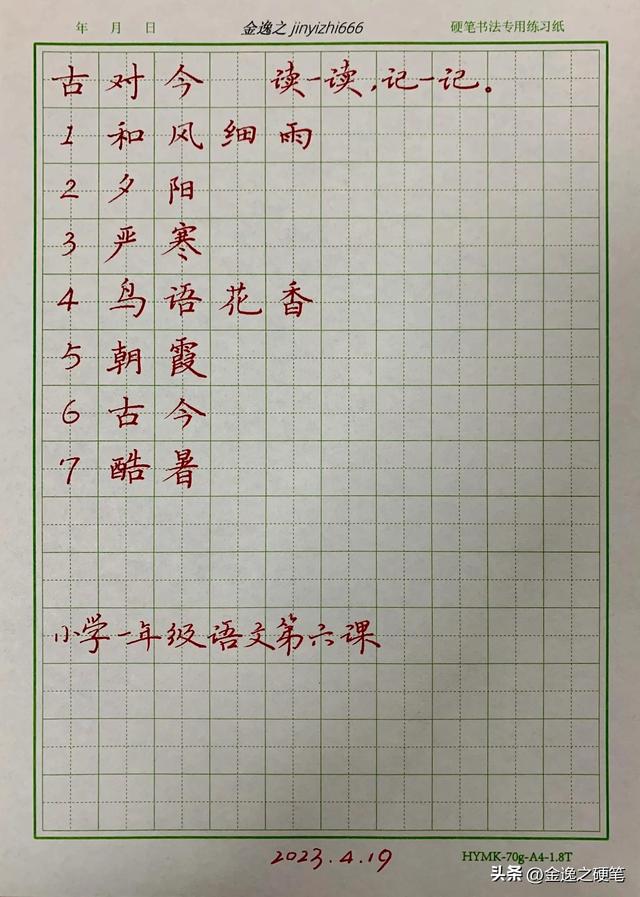 年 月 日 金逸之 jinyizhi666 硬笔书法专用练习纸
古对今 读一读,记一记。
1 和风细雨
2 夕阳
3 严寒
4 鸟语花香
5 朝霞
6 古今
7 酷暑
小学一年级语文第六课
2023.4.19 HYMK-70g-A4-1.8T
头条 @金逸之硬笔